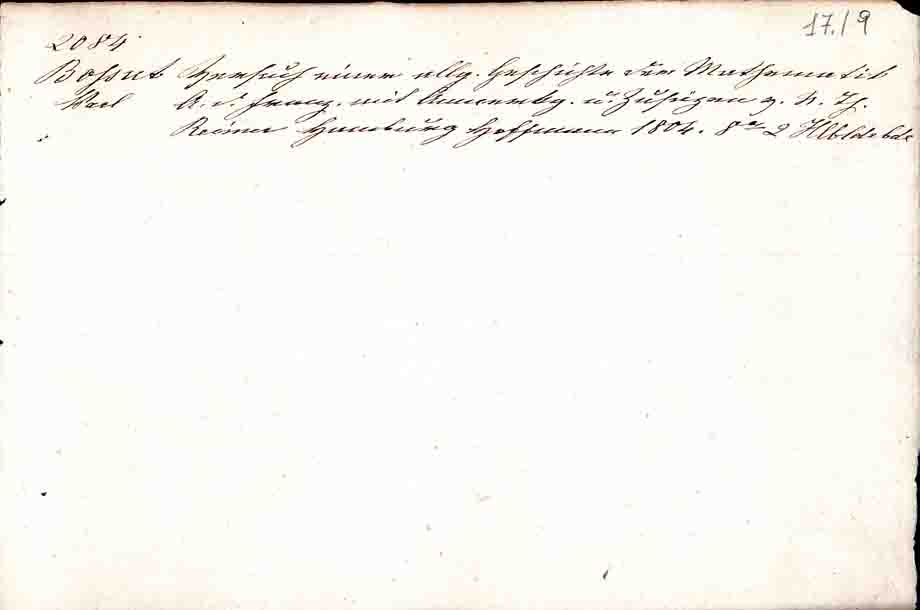 17./9
2084
Bossut Versuch einer allg. Geschichte der Mathematik
Karl A. d. Franz. mit Anmerkg. u. Zusäzen v. N. Th.
Reimer Hamburg Hoffmann 1804. 8° 2 Hlbldrbde